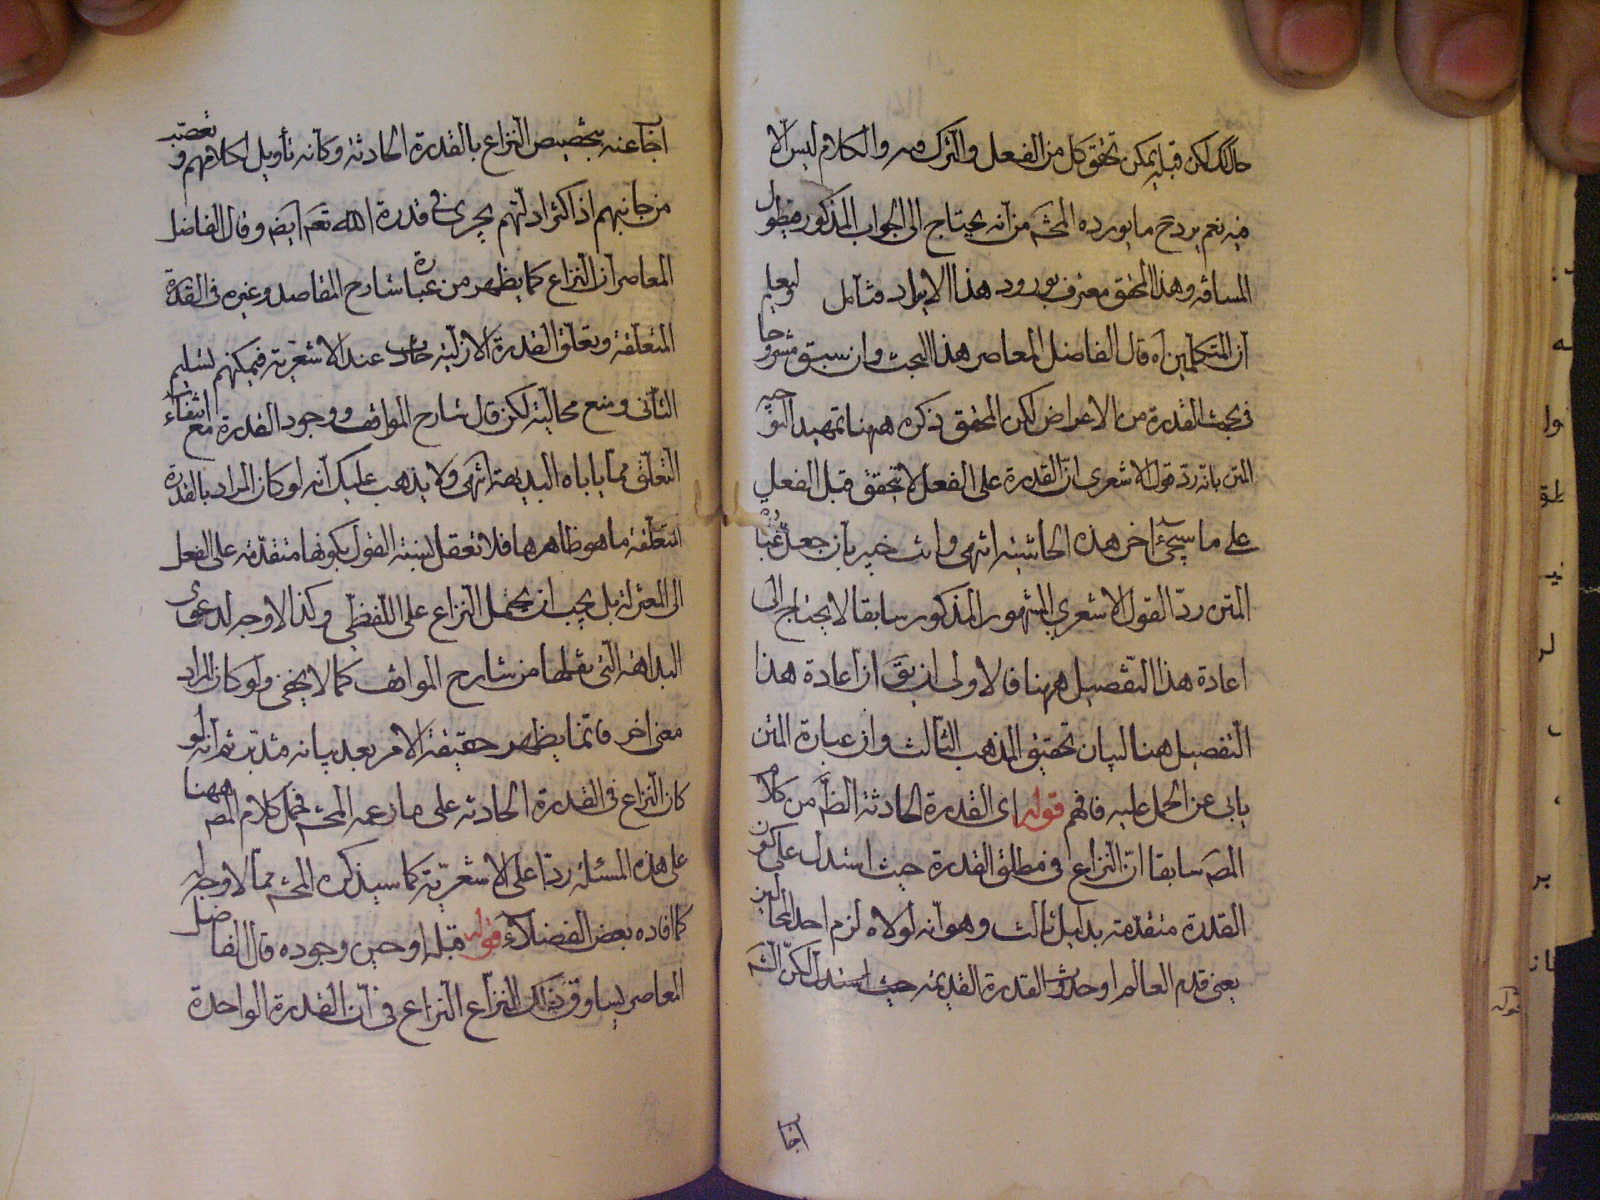 حالك لكن قبله يمكن تحقق كل من الفعل والترك منه والكلام ليس الا
فيه نعم يرد ح ما يورده المحشم من انه يحتاج الى الجواب المذكور فيطول
المسافة وهذا المحقق معترف بورود هذا الايراد فتأمل وليعلم
ان المتكلمين اه قال الفاضل المعاصر هذا البحث وان سبق مشروحا
في بحث القدرة من الاعراض لكن المحقق ذكره ههنا تمهيدا لتوجيه
المتن بانه رد قول الاشعرى ان القدرة على الفعل لا يتحقق قبل الفعل
على ما سيجئ اخر هذه الحاشية انتهى وانت خبير بان جعل عبارة
المتن ردّ القول الاشعرى المشهور المذكور سابقا لا يحتاج الى
اعادة هذا التفصيل ههنا فالاولى ان يق ان اعادة هذا
التفصيل هنا لبيان تحقيق المذهب الثالث وان عبارة المتن
يابى عن الحمل عليه فافهم قوله اى القدرة الحادثة الظ من كلام
المصه سابقا ان النزاع فى مطلق القدرة حيث استدل على كون
القدرة متقدمة بدليل ثالث وهو انه لولاه لزم احد المحالين
يعنى قدم العالم او حدوث القدرة القديمة حيث استدل لكن الشم
اجا
اجاعنه بتخصيص النزاع بالقدرة الحادثة وكانه تأويل لكلامهم وتعصب
من جانبهم اذ اكثر ادلتهم يجرى فى قدرة الله تعم ايضه وقال الفاضل
المعاصر ان النزاع كما يظهر من عبارة شارح المقاصد وغيره فى القدرة
المتعلقة وتعلق القدرة الازلية حادث عند الاشعرية فيمكنهم تسليم
الثانى ومنع محاليته لكن قال شارح المواقف ووجود القدرة مع انتفاء
التعلق مما ياباه البديهة انتهى ولا يذهب عليك انه لو كان المراد بالقدرة
المتعلقة ما هو ظاهرها فلا تعقل لنسبة القول بكونها متقدمة على الفعل
الى المعتزلة بل يجب ان يحمل النزاع على اللفظى وكذا لا وجه لدعوى
البداهة التى نقلها من شارح المواقف كما لا يخفى ولو كان المراد
معنى اخر فانما يظهر حقيقة الامر بعد بيانه فتدبر ثم انه لو
كان النزاع فى القدرة الحادثة على ما زعمه المحشم فحمل كلام المصه ههنا
على هذه المسئلة ردّا على الاشعرية كما سيذكره المحشم مما لا وجه له
كما افاده بعض الفضلاء قوله قبله او حين وجوده قال الفاضل
المعاصر يساوق ذلك النزاع النزاع فى ان القدرة الواحدة